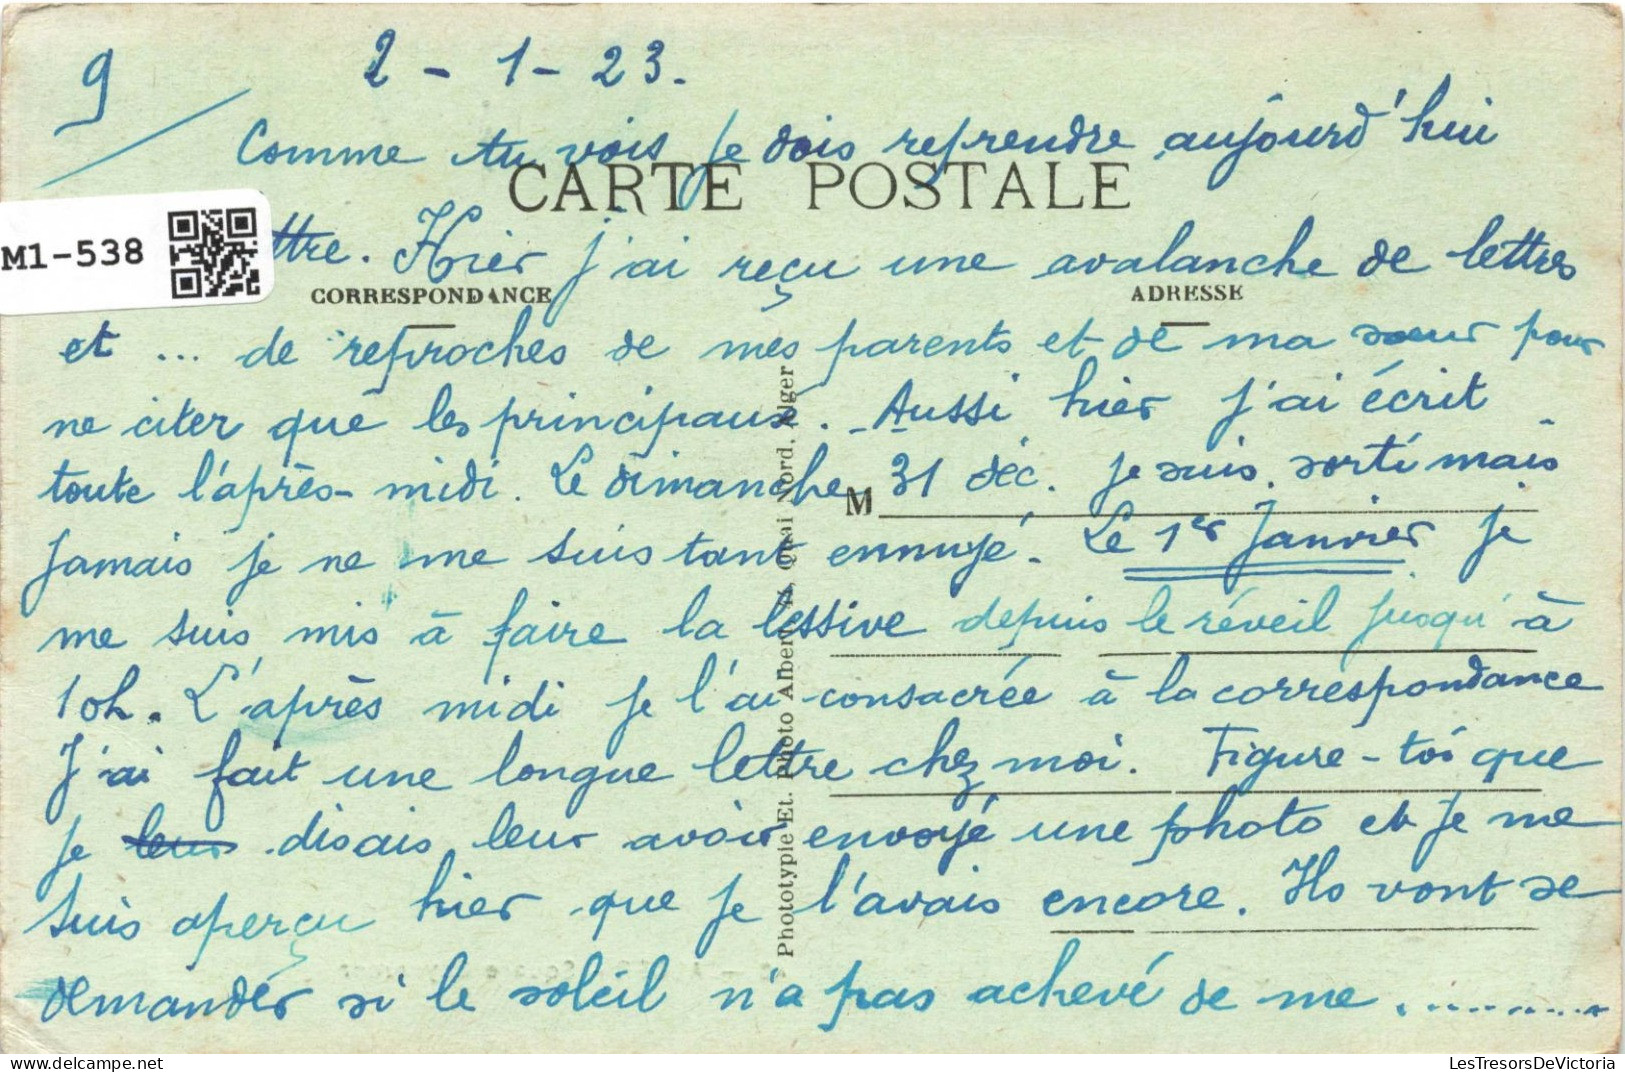 9
2 - 1 - 23.
Comme tu vois je dois reprendre aujourd'hui
CARTE POSTALE
M1-538
ttre. Hier j'ai reçu une avalanche de lettres
CORRESPONDANCE
ADRESSE
et ... de reproches de mes parents et de ma sœur pour
ne citer que les principaux. - Aussi hier j'ai écrit
toute l'après-midi. Le dimanche 31 déc. je suis sorti mais
M
jamais je ne me suis tant ennuyé. Le 1er Janvier je
me suis mis à faire la lessive depuis le réveil jusqu'à
10h. L'après midi je l'ai consacrée à la correspondance
J'ai fait une longue lettre chez moi. Figure-toi que
je leur disais leur avoir envoyé une photo et je me
suis aperçu hier que je l'avais encore. Ils vont se
demander si le soleil n'a pas achevé de me ...........
Phototypie Et. Photo Albert, Quai Nord, Alger
LesTresorsDeVictoria